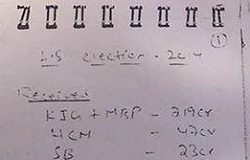 ①
L.S election - 2014
Received
KJG + MRP - 219cr
HCM - 47cr
SB - 23cr